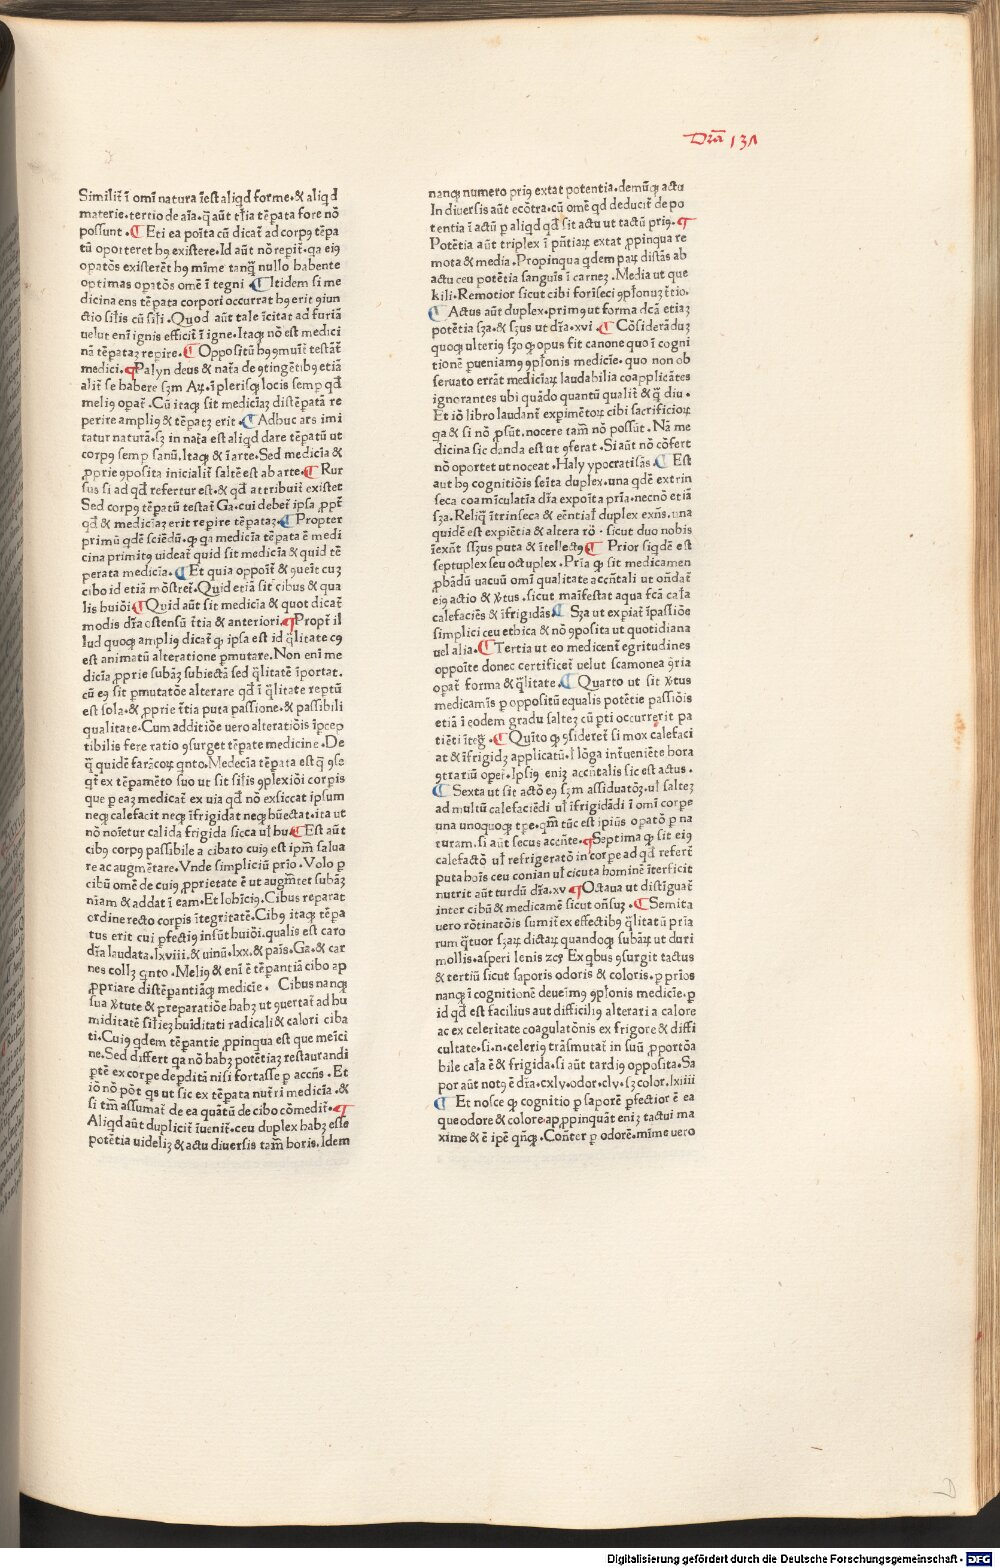 Dr̃a 131
Similit̃ ĩ om̃i natura ĩest aliq̃d forme.& aliq̃d
materie.tertio de aĩa.q̃ aũt tl̃ia tẽpata fore nõ
possunt.¶ Eti ea poĩta cũ dicat̃ ad corpꝰ tẽpa
tũ oporteret hꝰ existere.Id aũt nõ reperit̃.qa eiꝰ
opatõs existerẽt hꝰ mĩme tanq̃ nullo habente
optimas opatõs omẽ ĩ tegni ¶ Itidem si me
dicina ens tẽpata corpori occurrat hꝰ erit ꝯiun
ctio sil̃is cũ sil̃i.Quod aũt tale ĩcitat ad furiã
uelut eni ignis efficit̃ ĩ igne.Itaqꝫ nõ est medici
nã tẽpataꝫ repire.¶ Oppositũ hꝰ ꝯmuĩt testãt̃
medici.¶Palyn deus & nat̃a de ꝯtingẽtibꝰ etiã
alit̃ se habere sꝫm Aꝝ.ĩ plerisqꝫ locis semp qd̃
meliꝰ opat̃.Cũ itaqꝫ sit medicĩaꝫ distẽpatã re
perire ampliꝰ & tẽpatꝫ erit.¶ Adhuc ars imi
tatur naturã.sꝫ in nat̃a est aliqd dare tẽpatũ ut
corpꝰ semp sanũ.Itaqꝫ & ĩ arte.Sed medicĩa &
ꝓprie ꝯposita inicialit̃ saltẽ est ab arte.¶ Rur
sus si ad qd̃ refertur est.& qd̃ attribuit̃ existet
Sed corpꝰ tẽpatũ testat̃ Ga.cui debet̃ ipsa ꝓpt̃
qd̃ & medicĩaꝫ erit repire tẽpataꝫ.¶ Propter
primũ qdẽ sciẽdũ.qꝫ qa medicĩa tẽpata ẽ medi
cina primitꝰ uideat̃ quid sit medicĩa & quid tẽ
perata medicĩa.¶ Et quia oppoĩt̃ & ꝯueĩt cuꝫ
cibo id etiã mõstret̃.Quid etiã sit cibus & qua
lis huiõi ¶ Quid aũt sit medicĩa & quot dicat̃
modis dr̃a ostensũ t̃tia & anteriori.¶Propt̃ il
lud quoqꝫ ampliꝰ dicat̃ qꝫ ipsa est id q̃litate cꝰ
est animatũ alteratione pmutare.Non eni me
dicĩa ꝓprie subãꝫ subiectã sed q̃litatẽ ĩportat.
cũ eꝰ sit pmutatõe alterare qd̃ ĩ q̃litate reptũ
est sola.& ꝓprie t̃tia puta passione.& passibili
qualitate.Cum additiõe uero alteratiõis ĩpcep
tibilis fere ratio ꝯsurget tẽpate medicine.De
q̃ quidẽ farãcoꝝ qnto.Medecĩa tẽpata est q̃ ꝯse
qt̃ ex tẽpamẽto suo ut sit sil̃is ꝯplexiõi corpis
que p eaꝫ medicat̃ ex uia qd̃ nõ exsiccat ipsum
neqꝫ calefacit neqꝫ ĩfrigidat neqꝫ hũectat.ita ut
nõ noĩetur calida frigida sicca ul̃ hu.¶Est aũt
cibꝰ corpꝰ passibile a cibato cuiꝰ est ipm̃ salua
re ac augmẽtare.Vnde simpliciũ prĩo.Volo p
cibũ omẽ de cuiꝰ ꝓprietate ẽ ut augm̃tet subãꝫ
nĩam & addat ĩ eam.Et Iobĩciꝰ.Cibus reparat
ordine recto corpis ĩtegritatẽ.Cibꝰ itaqꝫ tẽpa
tus erit cui pfectiꝰ insũt huiõi.qualis est caro
dr̃a laudata.lxviii.& uinũ.lxx.& paĩs.Ga.& car
nes collꝫ qnto.Meliꝰ & eni ẽ tẽpantiã cibo ap
ꝓpriare distẽpantiãqꝫ medicĩe. Cibus nanqꝫ
sua x̃tute & preparatiõe habꝫ ut ꝯuertat̃ ad hu
miditatẽ sil̃ieꝫ huĩditati radicali & calori ciba
ti.Cuiꝰ qdem tẽpantie ꝓpinqua est que meĩci
ne.Sed differt qa nõ habꝫ potẽtiaꝫ restaurandi
ptẽ ex corpe depditã nisi fortasse p accñs.Et
iõ nõ põt qs ut sic ex tẽpata nutriri medicĩa.&
si tm̃ assumat̃ de ea quãtũ de cibo cõmedit̃.¶
Aliqd aũt duplicit̃ ĩuenit̃.ceu duplex habꝫ esse
potẽtia uidelicꝫ & actu diuersis tam̃ horis.Idem
nanqꝫ numero priꝰ extat potentia.demũqꝫ actu
In diuersis aũt ecõtra.cũ omẽ qd deducit̃ de po
tentia ĩ actũ p aliqd qd̃ sit actu ut tactũ priꝰ.¶
Potẽtia aũt triplex ĩ p̃ntiaꝝ extat ꝓpinqua re
mota & media.Propinqua qdem paꝝ distãs ab
actu ceu potẽtia sanguĩs ĩ carneꝫ.Media ut que
kili.Remotior sicut cibi forĩseci ꝯpl̃onuꝫ t̃tio.
¶ Actus aũt duplex.primꝰ ut forma dcã etiaꝫ
potẽtia sꝫa.& sꝫus ut dr̃a.xvi.¶ Cõsiderãduꝫ
quoqꝫ ulteriꝰ sꝫo qꝫ opus fit canone quo ĩ cogni
tionẽ pueniamꝰ ꝯpl̃onis medicĩe.quo non ob
seruato errãt medicĩaꝝ laudabilia coapplicãtes
ignorantes ubi quãdo quantũ qualit̃ & q̃ diu.
Et iõ libro laudant̃ expimẽtoꝝ cibi sacrificioꝝ
ga & si nõ ꝓsũt.nocere tam̃ nõ possũt.Nã me
dicina sic danda est ut ꝯferat.Si aũt nõ cõfert
nõ oportet ut noceat.Haly ypocratisãs.¶ Est
aut hꝰ cognitiõis seĩta duplex.una qdẽ extrin
seca coam̃iculatĩa dĩa expoĩta prĩa.necnõ etiã
sꝫa.Reliq̃ ĩtrinseca & eẽntial̃ duplex exñs.una
quidẽ est expiẽtia & altera rõ.sicut duo nobis
ĩexñt sꝫsus puta & ĩtellectꝰ¶ Prior siqdẽ est
septuplex seu octuplex.Prĩa qꝫ sit medicamen
ꝓbãdũ uacuũ om̃i qualitate accñtali ut oñdat̃
eiꝰ actio & x̃tus.sicut maĩfestat aqua fcã cal̃a
calefaciẽs & ĩfrigidãs¶ Sꝫa ut expiat̃ ĩpassiõe
simplici ceu ethica & nõ ꝯposita ut quotidiana
uel alia.¶ Tertia ut eo medicent̃ egritudines
oppoĩte donec certificet̃ uelut scamonea ꝯr̃ia
opat̃ forma & q̃litate.¶ Quarto ut sit x̃tus
medicamĩs p oppositũ equalis potẽtie passiõis
etiã ĩ eodem gradu salteꝫ cũ pti occurrerit pa
tiẽti ĩteg̃.¶ Quĩto qꝫ ꝯsideret̃ si mox calefaci
at & ĩfrigidꝫ applicatũ.ĩ lõga int̃ueniẽte hora
ꝯtratiũ opei.Ipsiꝰ eniꝫ accñtalis sic est actus.
¶ Sexta ut sit actõ eꝰ sꝫm assiduatõꝫ.ul̃ saltez
ad multũ calefaciẽdi ul̃ ĩfrigidãdi ĩ om̃i corpe
una unoquoqꝫ tpe.qm̃ tũc est ipiũs opatõ p na
turam.si aũt secus accñte.¶Septima qꝫ sit eiꝰ
calefactõ ul̃ refrigeratõ in corpe ad qd̃ refert̃
puta hoĩs ceu conian ul̃ cicuta hominẽ ĩterficit
nutrit aũt turdũ dr̃a.xv ¶Octaua ut distĩguat̃
inter cibũ & medicamẽ sicut oñsuꝫ.¶ Semita
uero rõtinatõis sumit̃ ex effectibꝰ q̃litatũ prĩa
rum q̃tuor sꝫaꝝ dictaꝝ quandoqꝫ subãꝝ ut duri
mollis.asperi lenis ꝛcꝭ Ex qbus ꝯsurgit tactus
& tertiũ sicut saporis odoris & coloris.p prĩos
nanqꝫ ĩ cognitionẽ deueĩmꝰ ꝯpl̃onis medicĩe.p
id qd̃ est facilius aut difficiliꝰ alterari a calore
ac ex celeritate coagulatõnis ex frigore & diffi
cultate.si.n.celeriꝰ trãsmutat̃ in suũ ꝓportõa
bile cal̃a ẽ & frigida.si aũt tardiꝰ opposita.Sa
por aũt notꝰ ẽ dr̃a.cxly.odor.cly.sꝫ color.lxiiii
¶ Et nosce qꝫ cognitio p saporẽ pfectior ẽ ea
que odore & colore.apꝓpinquãt eniꝫ tactui ma
xime & ẽ ipẽ qñqꝫ.Cõnter p odorẽ.mĩme uero
Digitalisierung gefördert durch die Deutsche Forschungsgemeinschaft - DFG